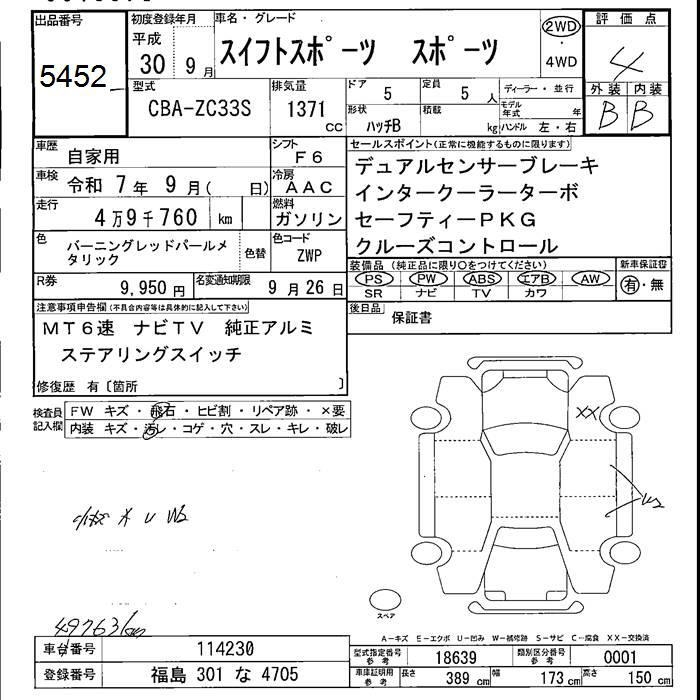 出品番号
5452
初度登録年月
平成
30 9月
車名・グレード
スイフトスポーツ スポーツ
2WD
・
4WD
評価点
4
外装 内装
B B
型式
CBA-ZC33S
排気量
1371
cc
ドア
5
定員
5
人
形状
ハッチB
積載
kg
ディーラー・並行
モデル
年式
年
ハンドル 左・右
車歴
自家用
シフト
F6
車検
令和 7年 9月( 日)
冷房
AAC
走行
4万9千760 km
燃料
ガソリン
色
バーニングレッドパールメ
タリック
色替
色コード
ZWP
R券
9,950円
名変通知期限
9月26日
セールスポイント(正常に機能するものに限ります)
デュアルセンサーブレーキ
インタークーラーターボ
セーフティーPKG
クルーズコントロール
装備品 (純正品に限り○をつけてください)
PS PW ABS エアB AW
SR ナビ TV カワ
新車保証書
有・無
後日品
保証書
注意事項申告欄(不具合内容等は具体的に記入して下さい)
MT6速 ナビTV 純正アルミ
ステアリングスイッチ
修復歴 有〔箇所 〕
検査員
記入欄
FW キズ・飛石・ヒビ割・リペア跡・×要
内装 キズ・汚レ・コゲ・穴・スレ・キレ・破レ
XX
スペア
49763km
A-キズ E-エクボ U-凹み W-補修跡 S-サビ C-腐食 XX-交換済
車台番号
114230
登録番号
福島 301 な 4705
型式指定番号
参考
18639
類別区分番号
参考
0001
車庫証明用
参考
長さ
389 cm
幅
173 cm
高さ
150 cm